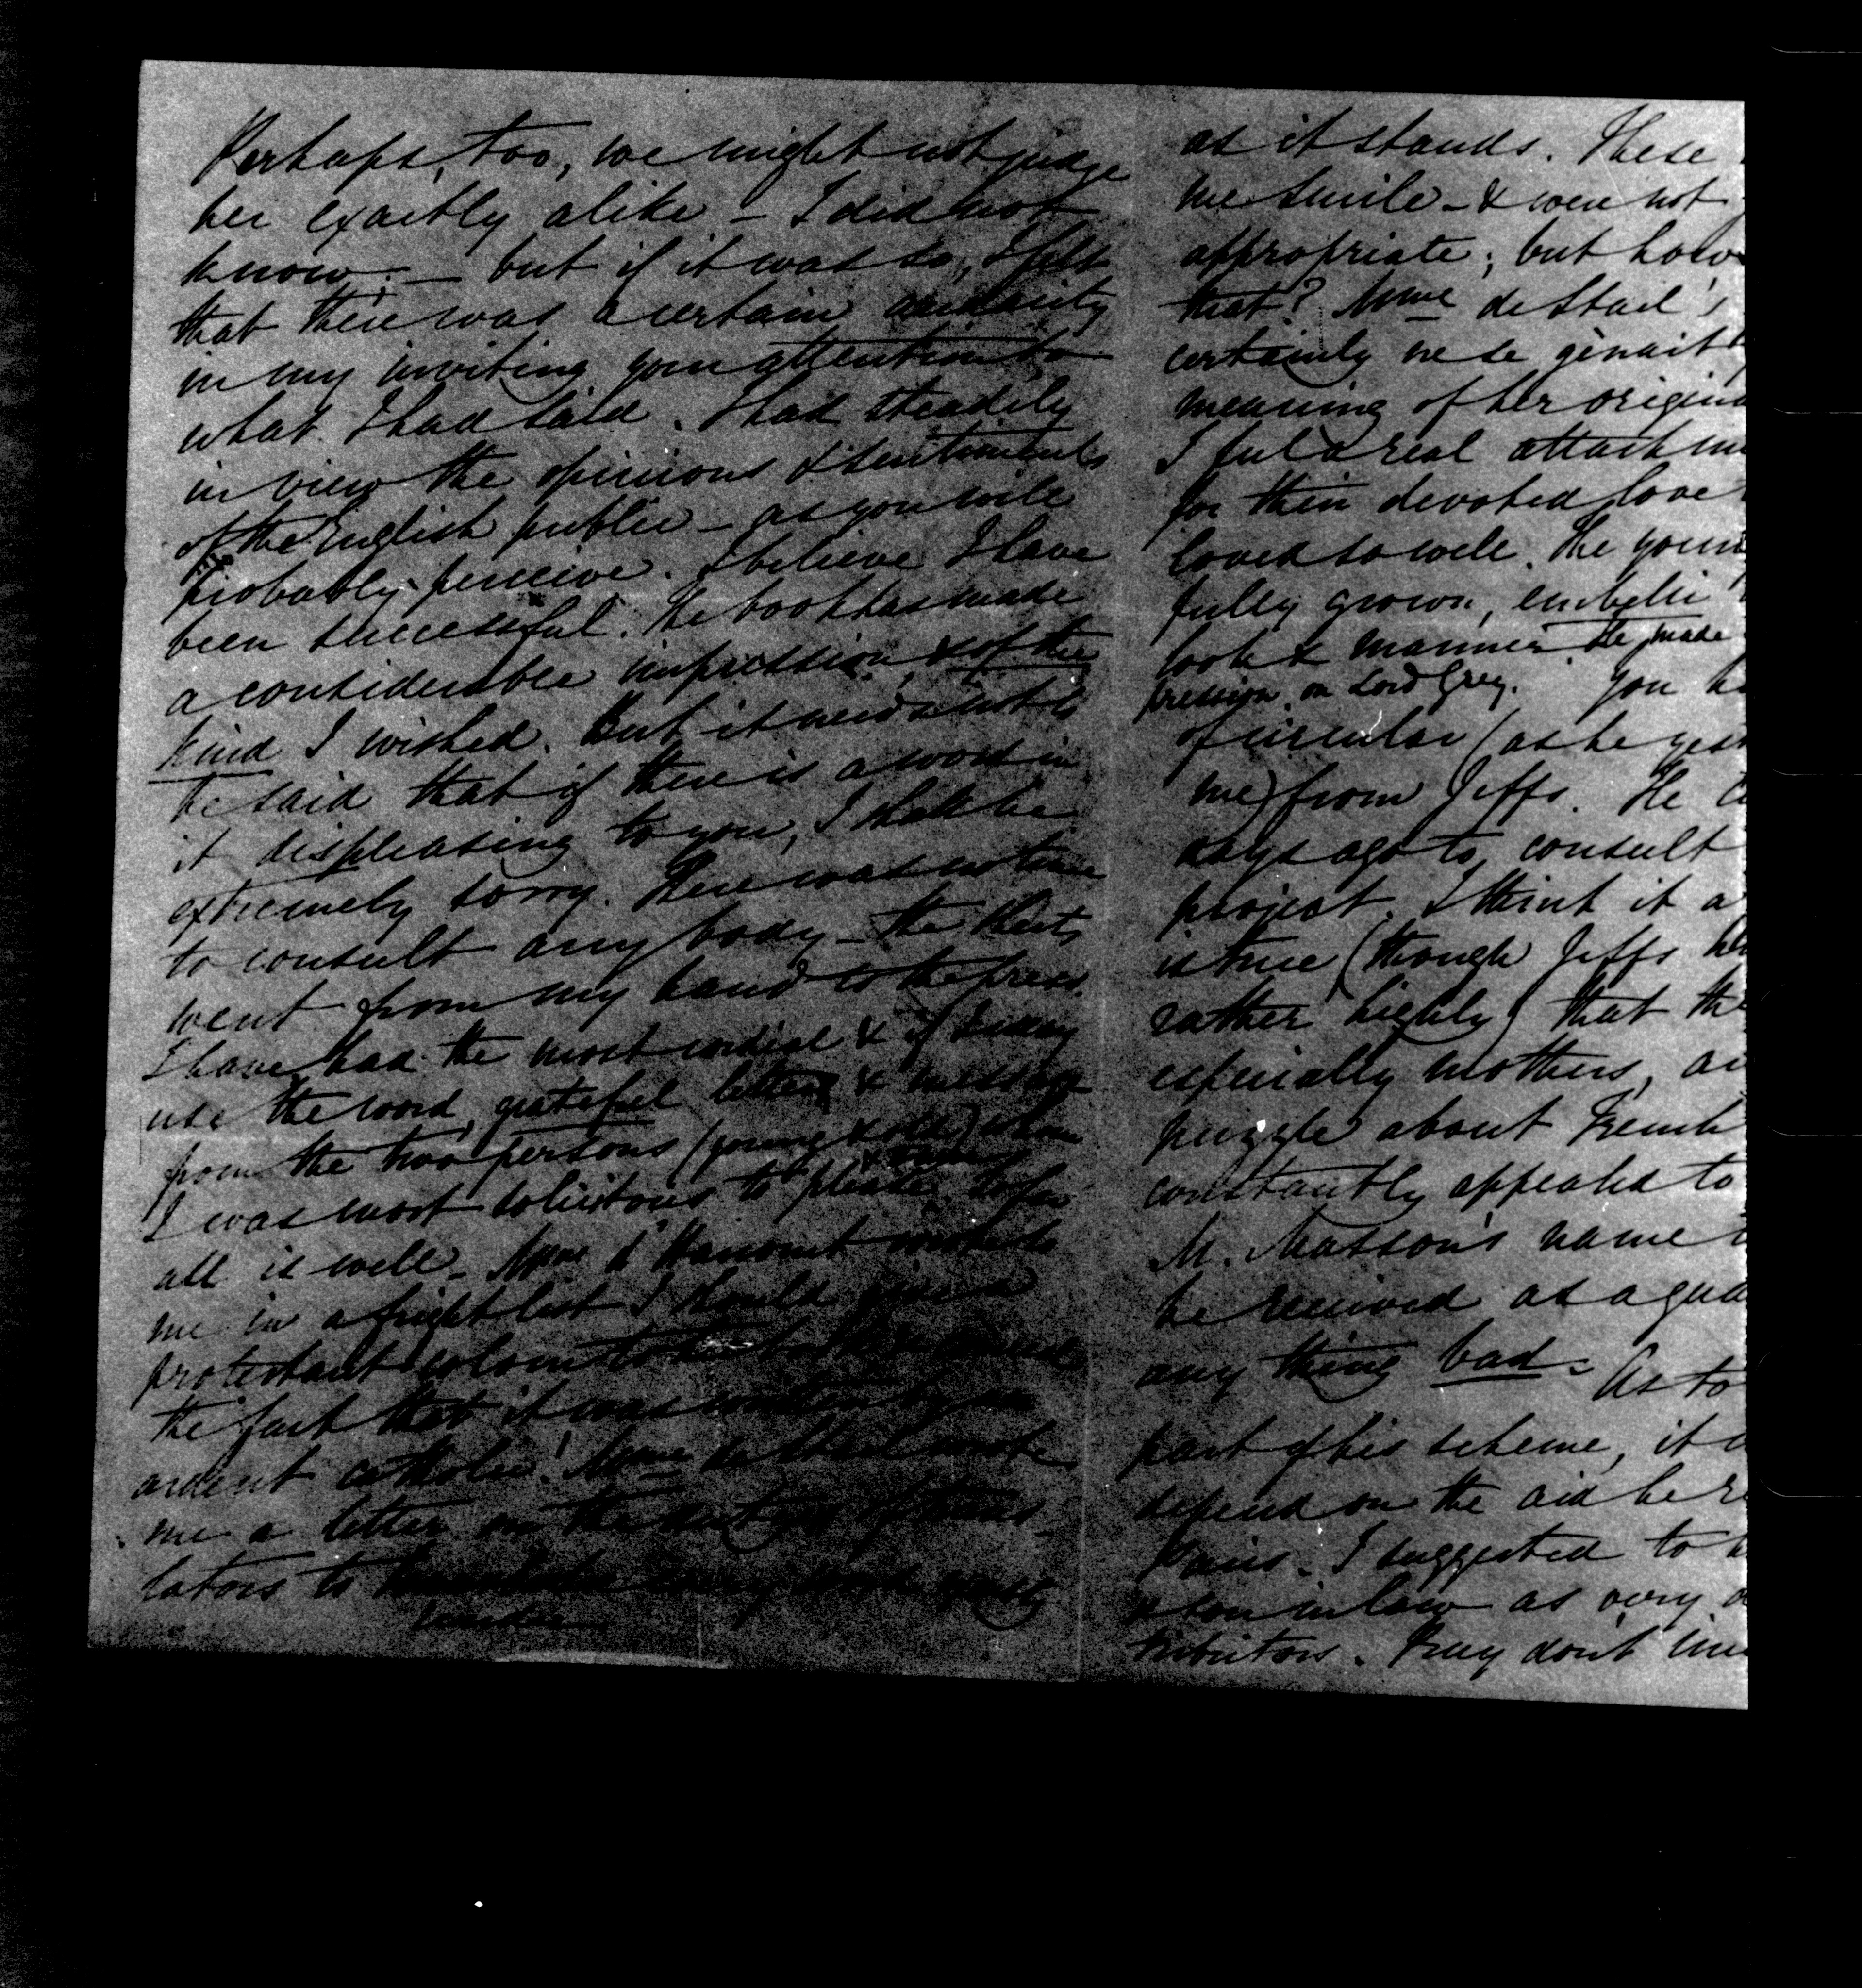 Perhaps, too, we might not judge
her exactly alike – I did not
know. – but if it was so, I felt
that there was a certain audacity
in my inviting your attention to
what I had said. I had steadily
in view the opinions & sentiments
of the English public – as you will
probably perceive. I believe I have
been successful. The book has made
a considerable impression, & of the
kind I wished. But it needs not to
be said that if there is a word in
it displeasing to you, I shall be
extremely sorry. There was no time
to consult any body – the sheets
went from my hand to the press.
I have had the most cordial & if I may
use the word, grateful letters & messages
from the two persons (young & old) whom
I was most solicitous to please. So far
all is well – Mme d'Harcourt wrote to
me in a fright lest I should give a
protestant colour to
the fact that it was written by an
ardent catholic! Mme de Stael wrote
me a letter on the duty of trans-
lators to every word
as it stands. These
me smile – & were not
appropriate; but how
that? Mme de Stael's
certainly ne se gênait
meaning of her origin
I feel a real attachm
for their devoted love
loved so well. The youn
fully grown, embelli
look & manner. He made
pression on Lord Grey. You h
of circular (as he
me) from Jeffs. He c
days ago to consult
project. I think it a
is true (though Jeffs
rather highly) that the
especially mothers, an
puzzle about French
constantly appealed to
M. Masson's name
be received as a gua
any thing bad. As to
part of his scheme, it
depend on the aid he re
Paris. I suggested to
& son in law as very
tributors. Pray don't